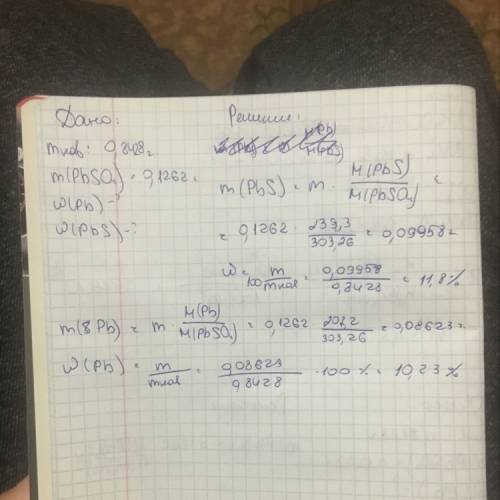 Дано:
Решение:
mнав: 0,8428г
m(PbSO₄) = 0,1262г
ω(Pb) - ?
ω(PbS) - ?
m(PbS) = m · M(PbS) / M(PbSO₄) =
= 0,1262 · 239,3 / 303,26 = 0,09958г
ω = 100 m / mнав = 0,09958 / 0,8428 = 11,8 %
m(Pb) = m · M(Pb) / M(PbSO₄) = 0,1262 · 207,2 / 303,26 = 0,08623г
ω(Pb) = m / mнав = 0,08623 / 0,8428 · 100 % = 10,23 %